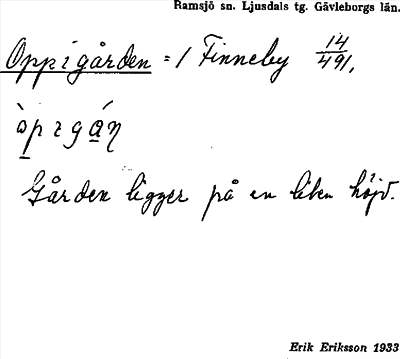 Ramsjö sn. Ljusdals tg. Gävleborgs län.
Oppigården = / Finneby 14/491.
Gården ligger på en liten höjd.
Erik Eriksson 1933